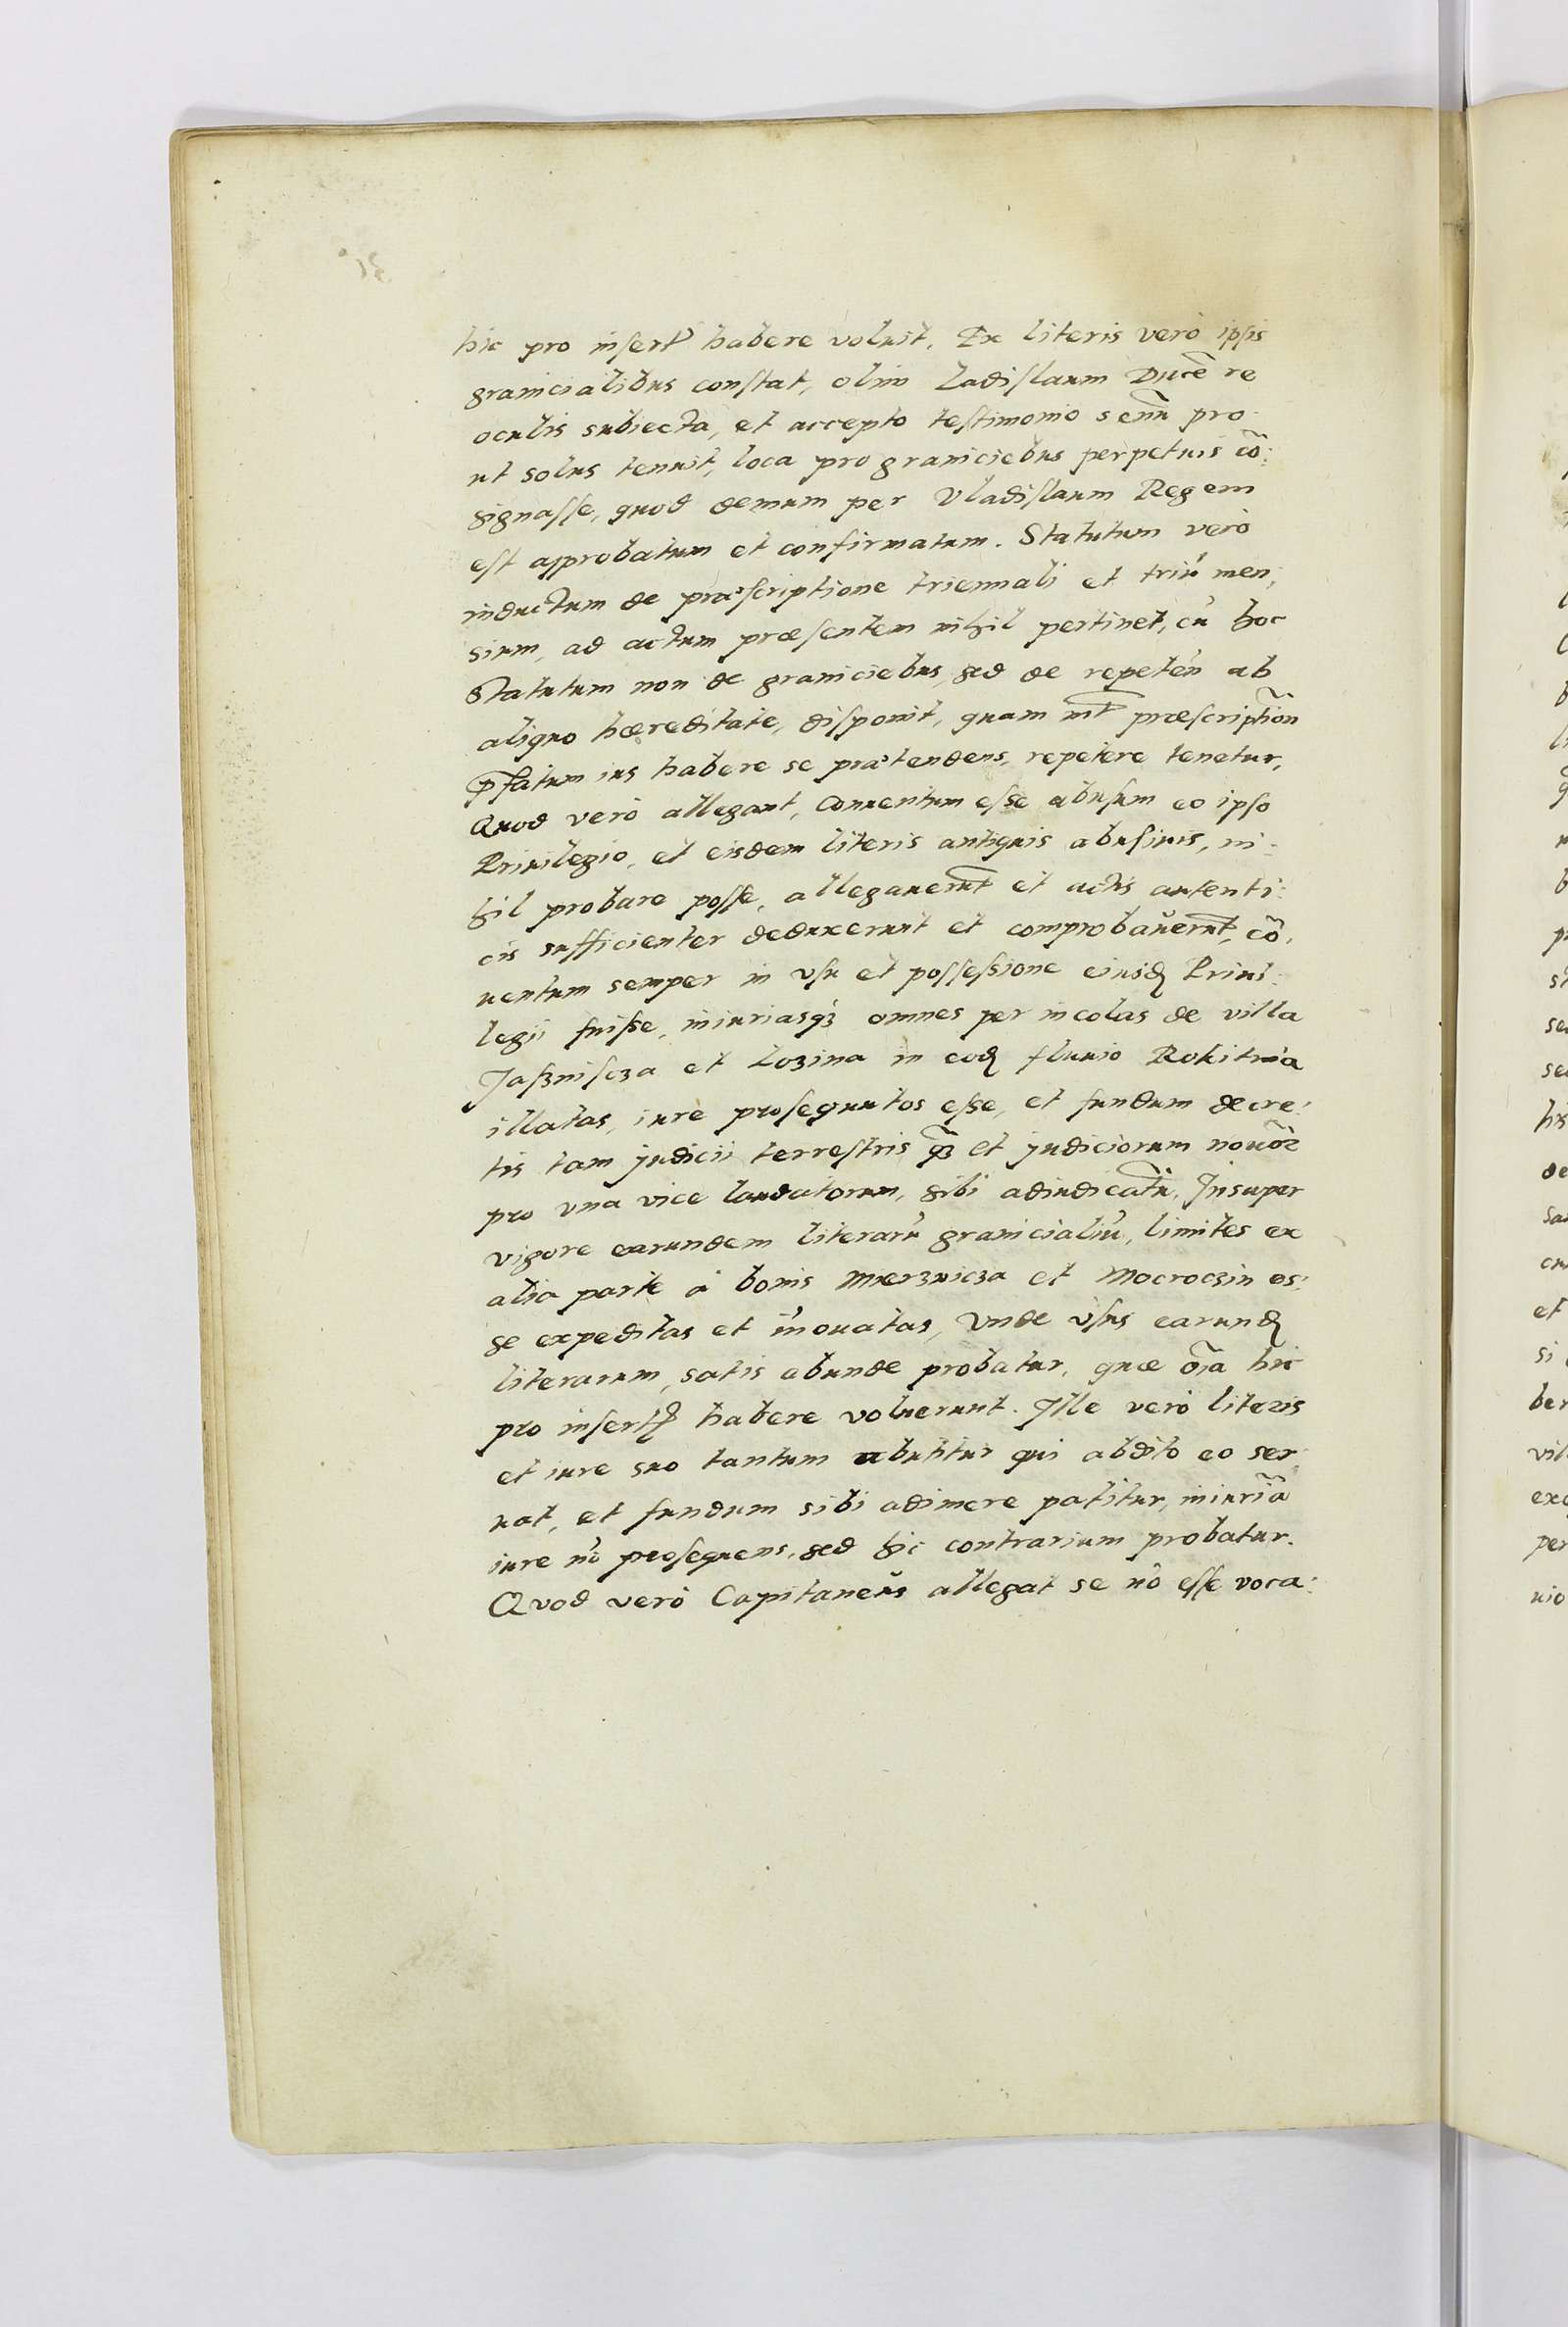 hic pro insert habere voluit. Ex literis verò ipsis
granicialibus constat, olim Ladislaum Ducē re
oculis subiecta, et accepto testimonio senū pro
ut solus tenuit, loca pro graniciebus perpetuis cō:
signasse, quod demum per Vladislaum Regem
est approbatum et confirmatum. Statutum verò
inductum de præscriptione triennali et triū men:
sium, ad actum præsentem nihil pertinet, cū hoc
Statutum non de graniciebus, sed de repeten̄ ab
aliquo hæreditate, disponit, quam int̄ præscription̄
p̄fatum ius habere se prætendens, repetere tenetur,
Quod verò allegant, Conuentum esse abusum eo ipso
Priuilegio, et eisdem literis antiquis abusiuis, ni:
hil probare posse, allegauerūt et actis autenti:
cis sufficienter deduxerunt et comprobauerūt, cō:
uentum semper in vsu et possessione eiusdꝫ Priui:
legii fuisse, iniuriasqꝫ omnes per incolas de villa
Jaszniscza et Lozina in eodꝫ fluuio Rokitnia
illatas, iure prosequutos esse, et fundum decre:
tis tam judicii terrestris qꝫ et judiciorum nouōꝝ
pro vna vice laudatorum, sibi adiudicatū. Insuper
vigore earundem literarū granicialiū, limites ex
alia parte à bonis Mierznicza et Mocroczin es:
se expeditas et īnouatas, Vnde vsus earundꝫ
literarum, satis abunde probatur, quæ oīa hic
pro insertꝫ habere voluerunt. Ille verò literis
et iure suo tantum abutitur qui abdito eo ser:
uat, et fundum sibi adimere patitur, iniuriā
iure nō prosequens, sed hic contrarium probatur.
Quod verò Capitaneus allegat se nō esse voca: